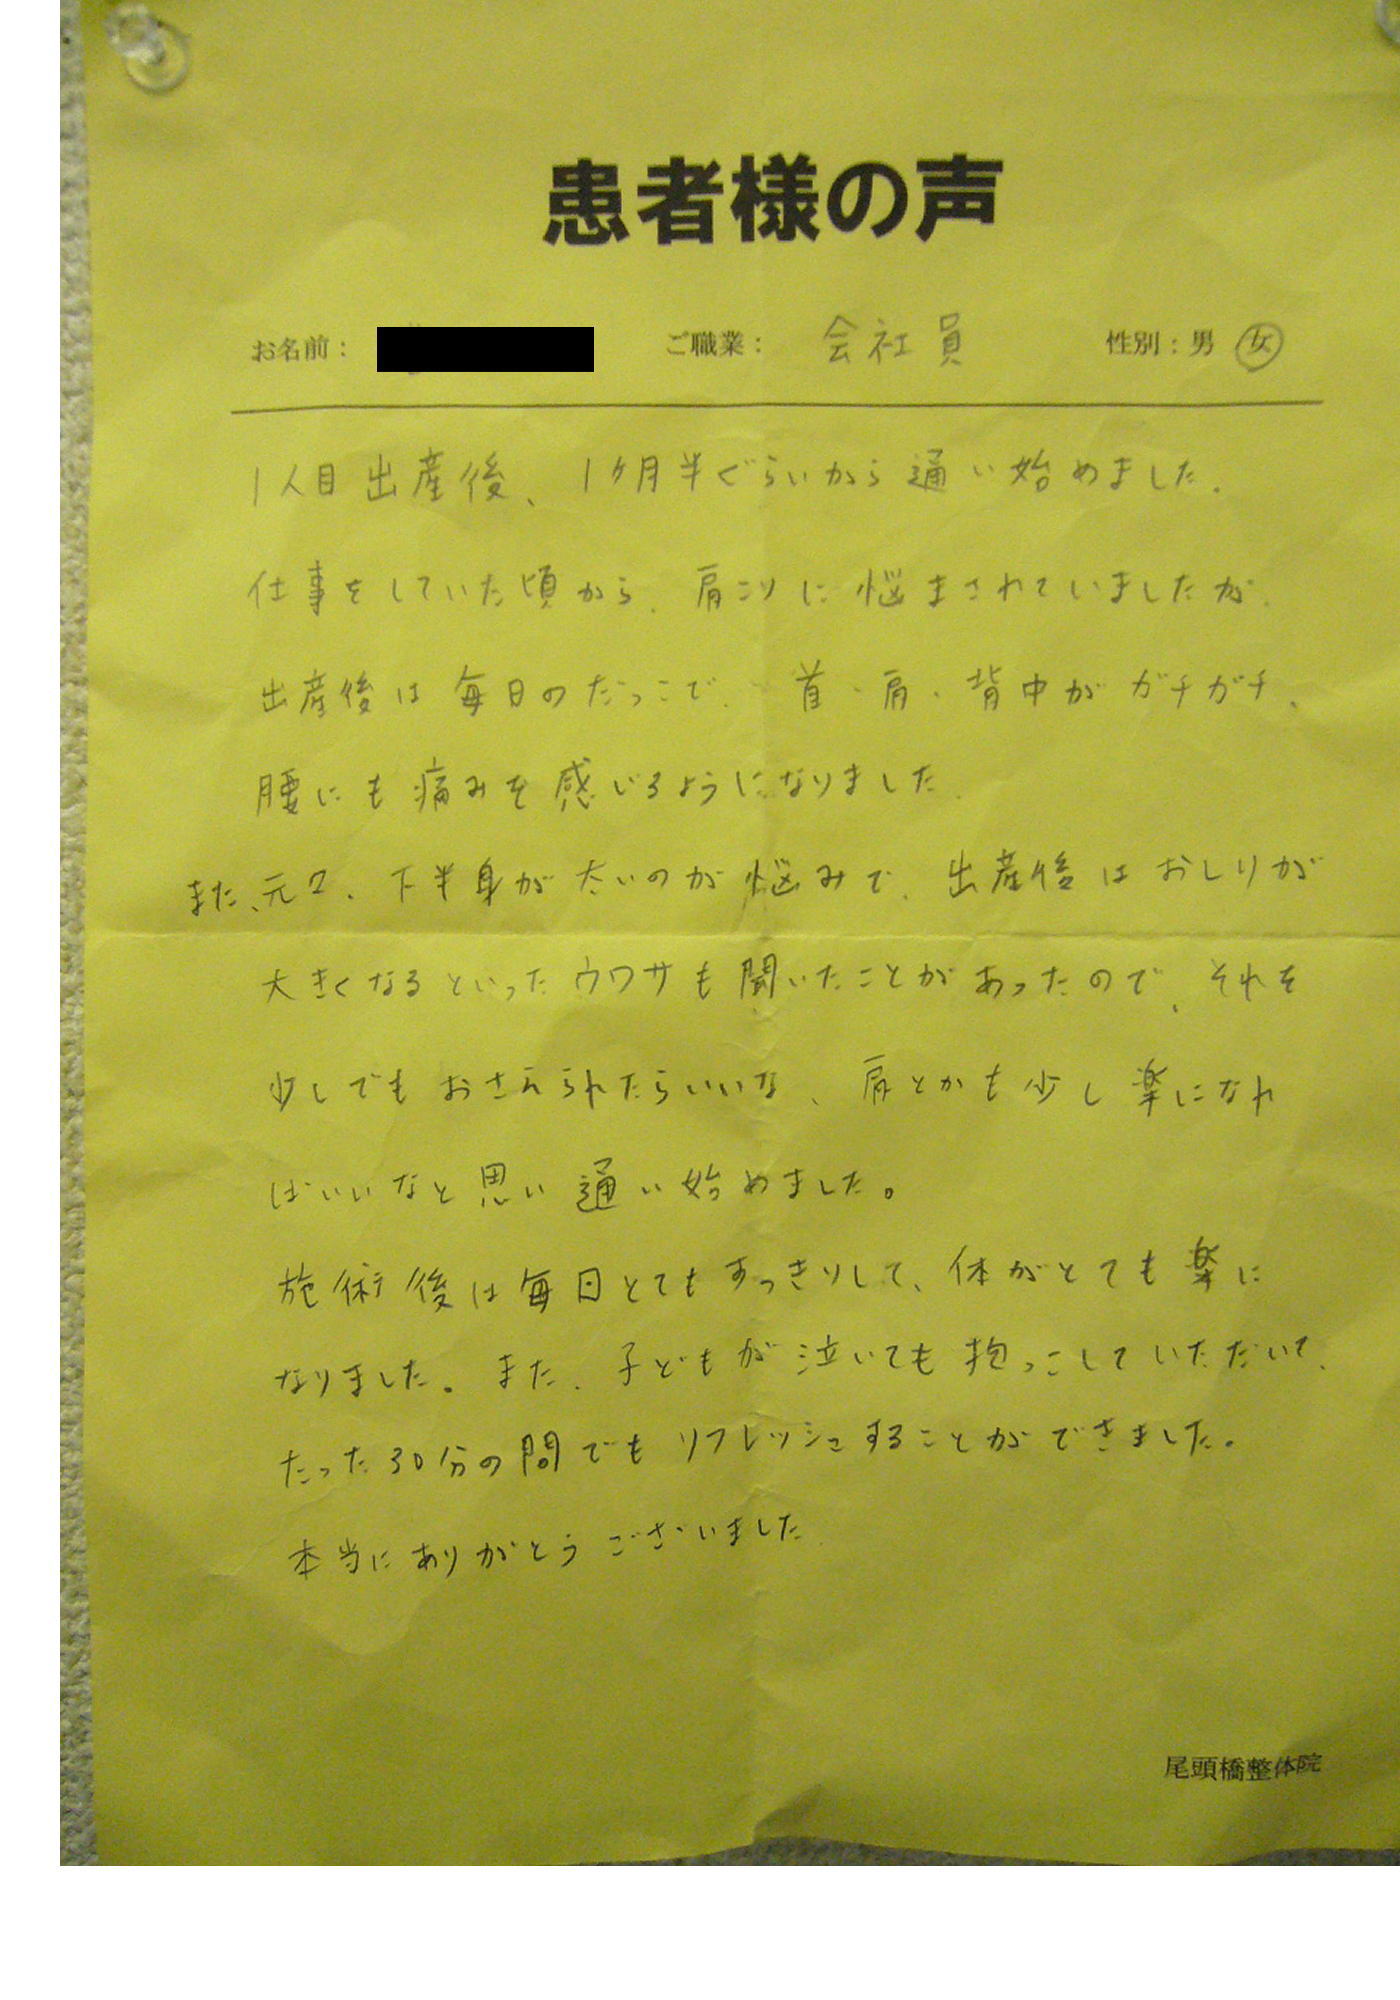 患者様の声
お名前： ご職業： 会社員 性別：男 女
1人目出産後、1ヶ月半ぐらいから通い始めました。
仕事をしていた頃から、肩こりに悩まされていましたが、
出産後は毎日のだっこで、首・肩・背中がガチガチ、
腰にも痛みを感じるようになりました。
また、元々、下半身が太いのが悩みで、出産後はおしりが
大きくなるといったウワサも聞いたことがあったので、それを
少しでもおさえられたらいいな、肩とかも少し楽になれ
ばいいなと思い通い始めました。
施術後は毎日とてもすっきりして、体がとても楽に
なりました。また、子どもが泣いても抱っこしていただいて、
たった30分の間でもリフレッシュすることができました。
本当にありがとうございました。
尾頭橋整体院